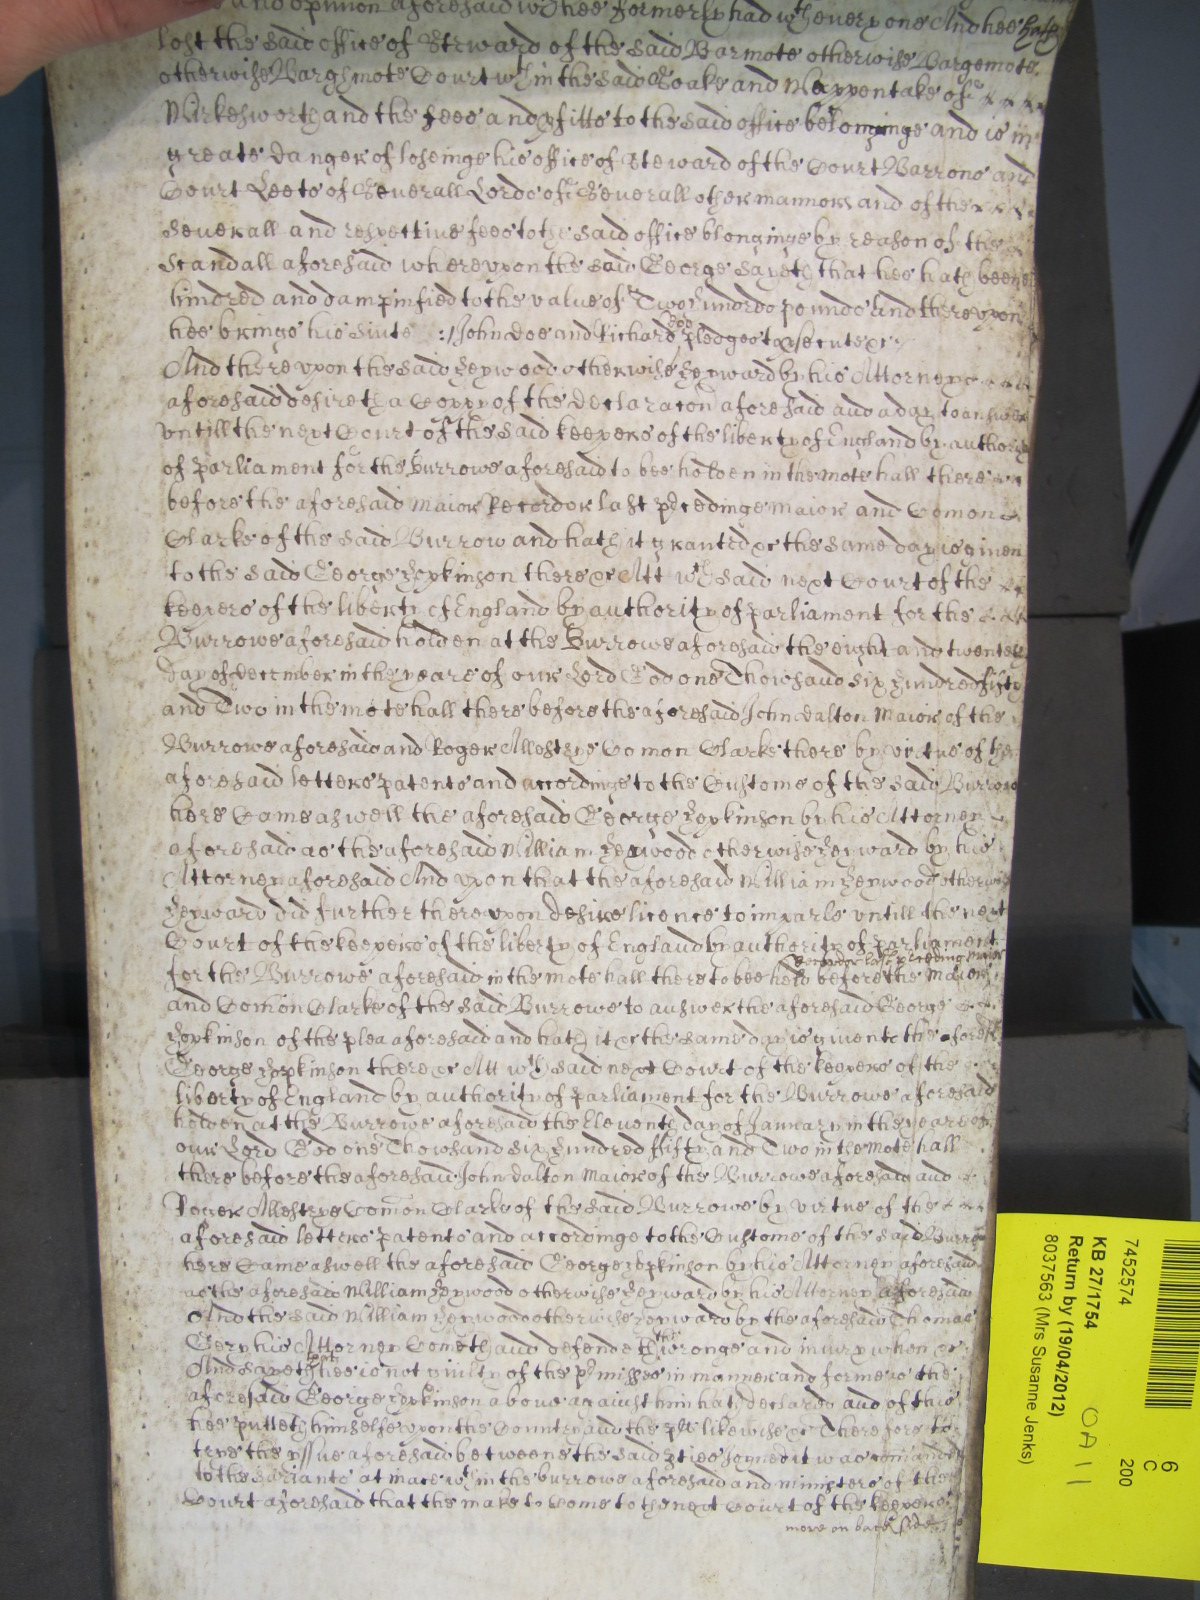 and opinion aforesaid w:ch hee formerly had w:th every one And hee hath
lost the said office of Steward of the said Barmote otherwise Bargemote
otherwise Barghmote Court w:th in the said Soake and Wappentake of
Wirkesworth and the fees and pfitts to the said office belonginge and is in
greate danger of loseinge his office of Steward of the Court Barrons and
Court Leets of Severall Lords of Severall other mannors and of the
Severall and respective fees to the said office blonginge by reason of the
Scandall aforesaid whereupon the said George Sayeth that hee hath beene
hindred and dampnified to the value of Two hundred pounds And thereupon
hee brings his Suite :/ John Doe and Richard Roo pledges to psecute &c:
And there upon the said Heywood otherwise Heyward by his Attorney
aforesaid desireth a Coppy of the declaracon aforesaid and a day to answer
untill the next Court of the said keepers of the liberty of England by authority
of parliament for the Burrowe aforesaid to bee holden in the mote hall there
before the aforesaid Maior Recordor last p:recedinge maior and Comon
Clarke of the said Burrow and hath it granted &c the same day is given
to the said George Hopkinson there &c Att w:ch said next Court of the
keepers of the liberty of England by authority of parliament for the
Burrowe aforesaid holden at the Burrowe aforesaid the eight and twenteth
day of december in the yeare of our Lord God one Thowsand Six Hundred fifty
and Two in the mote hall there before the aforesaid John dalton Maior of the
Burrowe aforesaid and Roger Allestrye Comon Clarke there by virtue of the
aforesaid letters patents and accordinge to the Custome of the said Burrowe
here Came aswell the aforesaid George Hopkinson by his Attorney
aforesaid as the aforesaid William Heywood otherwise Heyward by his
Attorney aforesaid And upon that the aforesaid William Heywood otherwise
Heyward did further thereupon desire licence to imparle untill the next
Court of the keepers of the liberty of England by authority of parliament
Recorder last preceding maior
for the Burrowe aforesaid in the mote hall there to bee held before the Maior
and Comon Clarke of the said Burrowe to answer the aforesaid George
Hopkinson of the plea aforesaid and hath it &c the same day is given to the aforesd
George Hopkinson there &c Att w:ch said next Court of the keepers of the
liberty of England by authority of parliament for the Burrowe aforesaid
holden at the Burrowe aforesaid the Eleventh day of January in the yeare of
our Lord God one Thowsand Six hundred ffifty and Two in the mote hall
there before the aforesaid John dalton Maior of the Burrowe aforesaid and
Roger Allestrye Comon Clarke of the said Burrowe by virtue of the
aforesaid letters patents and accordinge to the Custome of the said Burrowe
here Came aswell the aforesaid George Hopkinson by his Attorney aforesaid
as the aforesaid William Heywood otherwise Heyward by his Attorney aforesaid
And the said William Heywood otherwise Heyward by the aforesaid Thomas
his Attorney Cometh and defends the wronge and iniury when &c
And Sayeth that hee is not guilty of the p:rmisses in manner and forme as the
aforesaid George Hopkinson above against him hath declared and of this
hee putteth himselfe upon the Country and the plt likewise &c Therefore to
trye the yssue aforesaid betweene the said pties Joyned it was comanded
to the Seriants at mace w:th in the burrowe aforesaid and ministers of the
Court aforesaid that the make to Come to the next Court of the keepers
more on back side
6
C
7452574 200
KB 27/1754
Return by (19/04/2012)
8037563 (Mrs Susanne Jenks)
OA 11